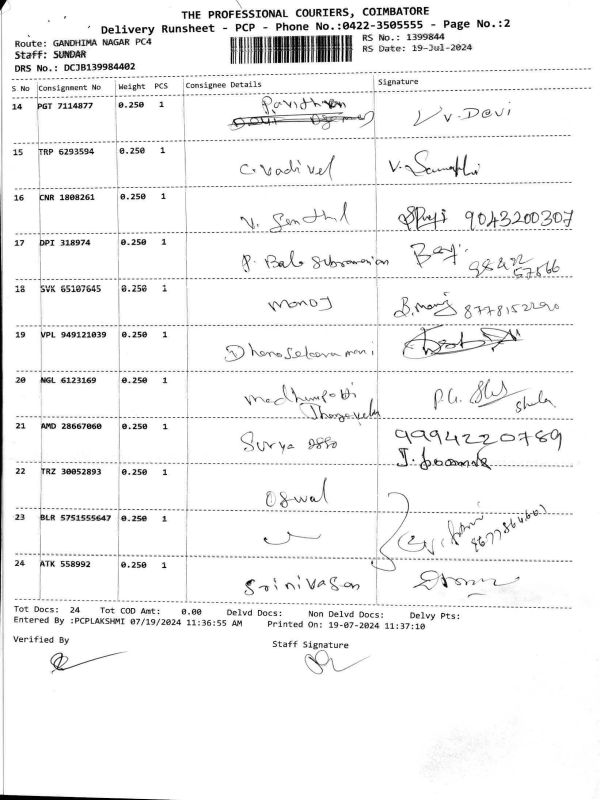 THE PROFESSIONAL COURIERS, COIMBATORE
Delivery Runsheet - PCP - Phone No.:0422-3505555 - Page No.:2
Route: GANDHIMA NAGAR PC4 RS No.: 1399844
Staff: SUNDAR RS Date: 19-Jul-2024
DRS No.: DCJB139984402
S.No Consignment No Weight PCS Consignee Details Signature
14 PGT 7114877 0.250 1 Pavithran V.Devi
15 TRP 6293594 0.250 1 C.Vadivel
16 CNR 1808261 0.250 1 V. Senthil 9043200307
17 DPI 318974 0.250 1 P. Bala Subramanian 98422 57566
18 SVK 65107645 0.250 1 Manoj 8778152290
19 VPL 949121039 0.250 1 Dhanasekaramani
20 NGL 6123169 0.250 1 P.G.
21 AMD 28667060 0.250 1 Surya 9994220789
22 TRZ 30052893 0.250 1 Oswal
23 BLR 5751555647 0.250 1
24 ATK 558992 0.250 1 Srinivasan
Tot Docs: 24 Tot COD Amt: 0.00 Delvd Docs: Non Delvd Docs: Delvy Pts:
Entered By :PCPLAKSHMI 07/19/2024 11:36:55 AM Printed On: 19-07-2024 11:37:10
Verified By Staff Signature